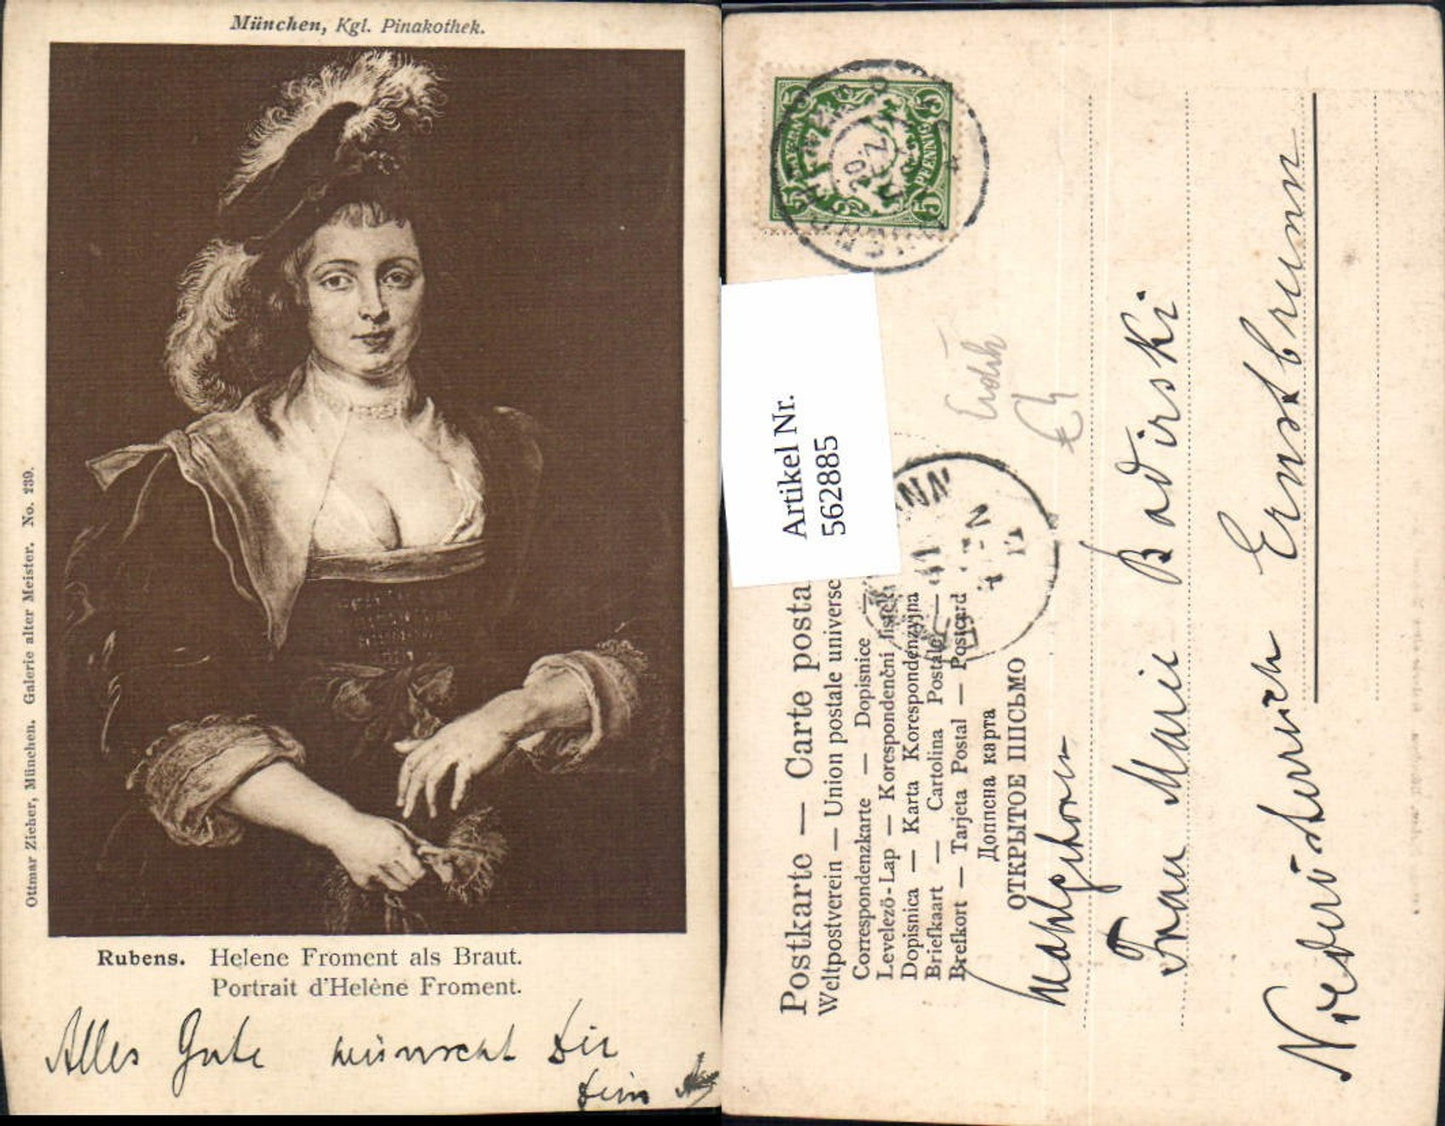 München, Kgl. Pinakothek.
Ottmar Zieher, München. Galerie alter Meister. No. 239.
Rubens. Helene Froment als Braut.
Portrait d'Helène Froment.
Alles Gute wünscht Dir
Dein
BAYERN
5 PFENNIG 5
20 DEZ
Artikel Nr.
562885
Postkarte — Carte posta
Weltpostverein — Union postale universe
Correspondenzkarte — Dopisnice —
Levelező-Lap — Korespondenční lístek
Dopisnica — Karta Korespondenzyjna
Briefkaart — Cartolina Postale —
Brefkort — Tarjeta Postal — Postcard
Дописна карта
ОТКРЫТОЕ ПИСЬМО
Wohlgeboren
Frau Marie Badirski
Ernstbrunn
Niederösterreich